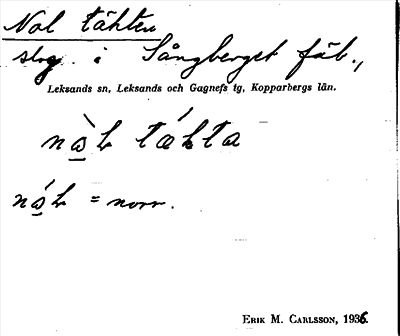 Nol täkten
skog. i Sångberget fäb.,
Leksands sn, Leksands och Gagnefs tg, Kopparbergs län.
nòl tákta
nól = norr.
Erik M. Carlsson, 1936.